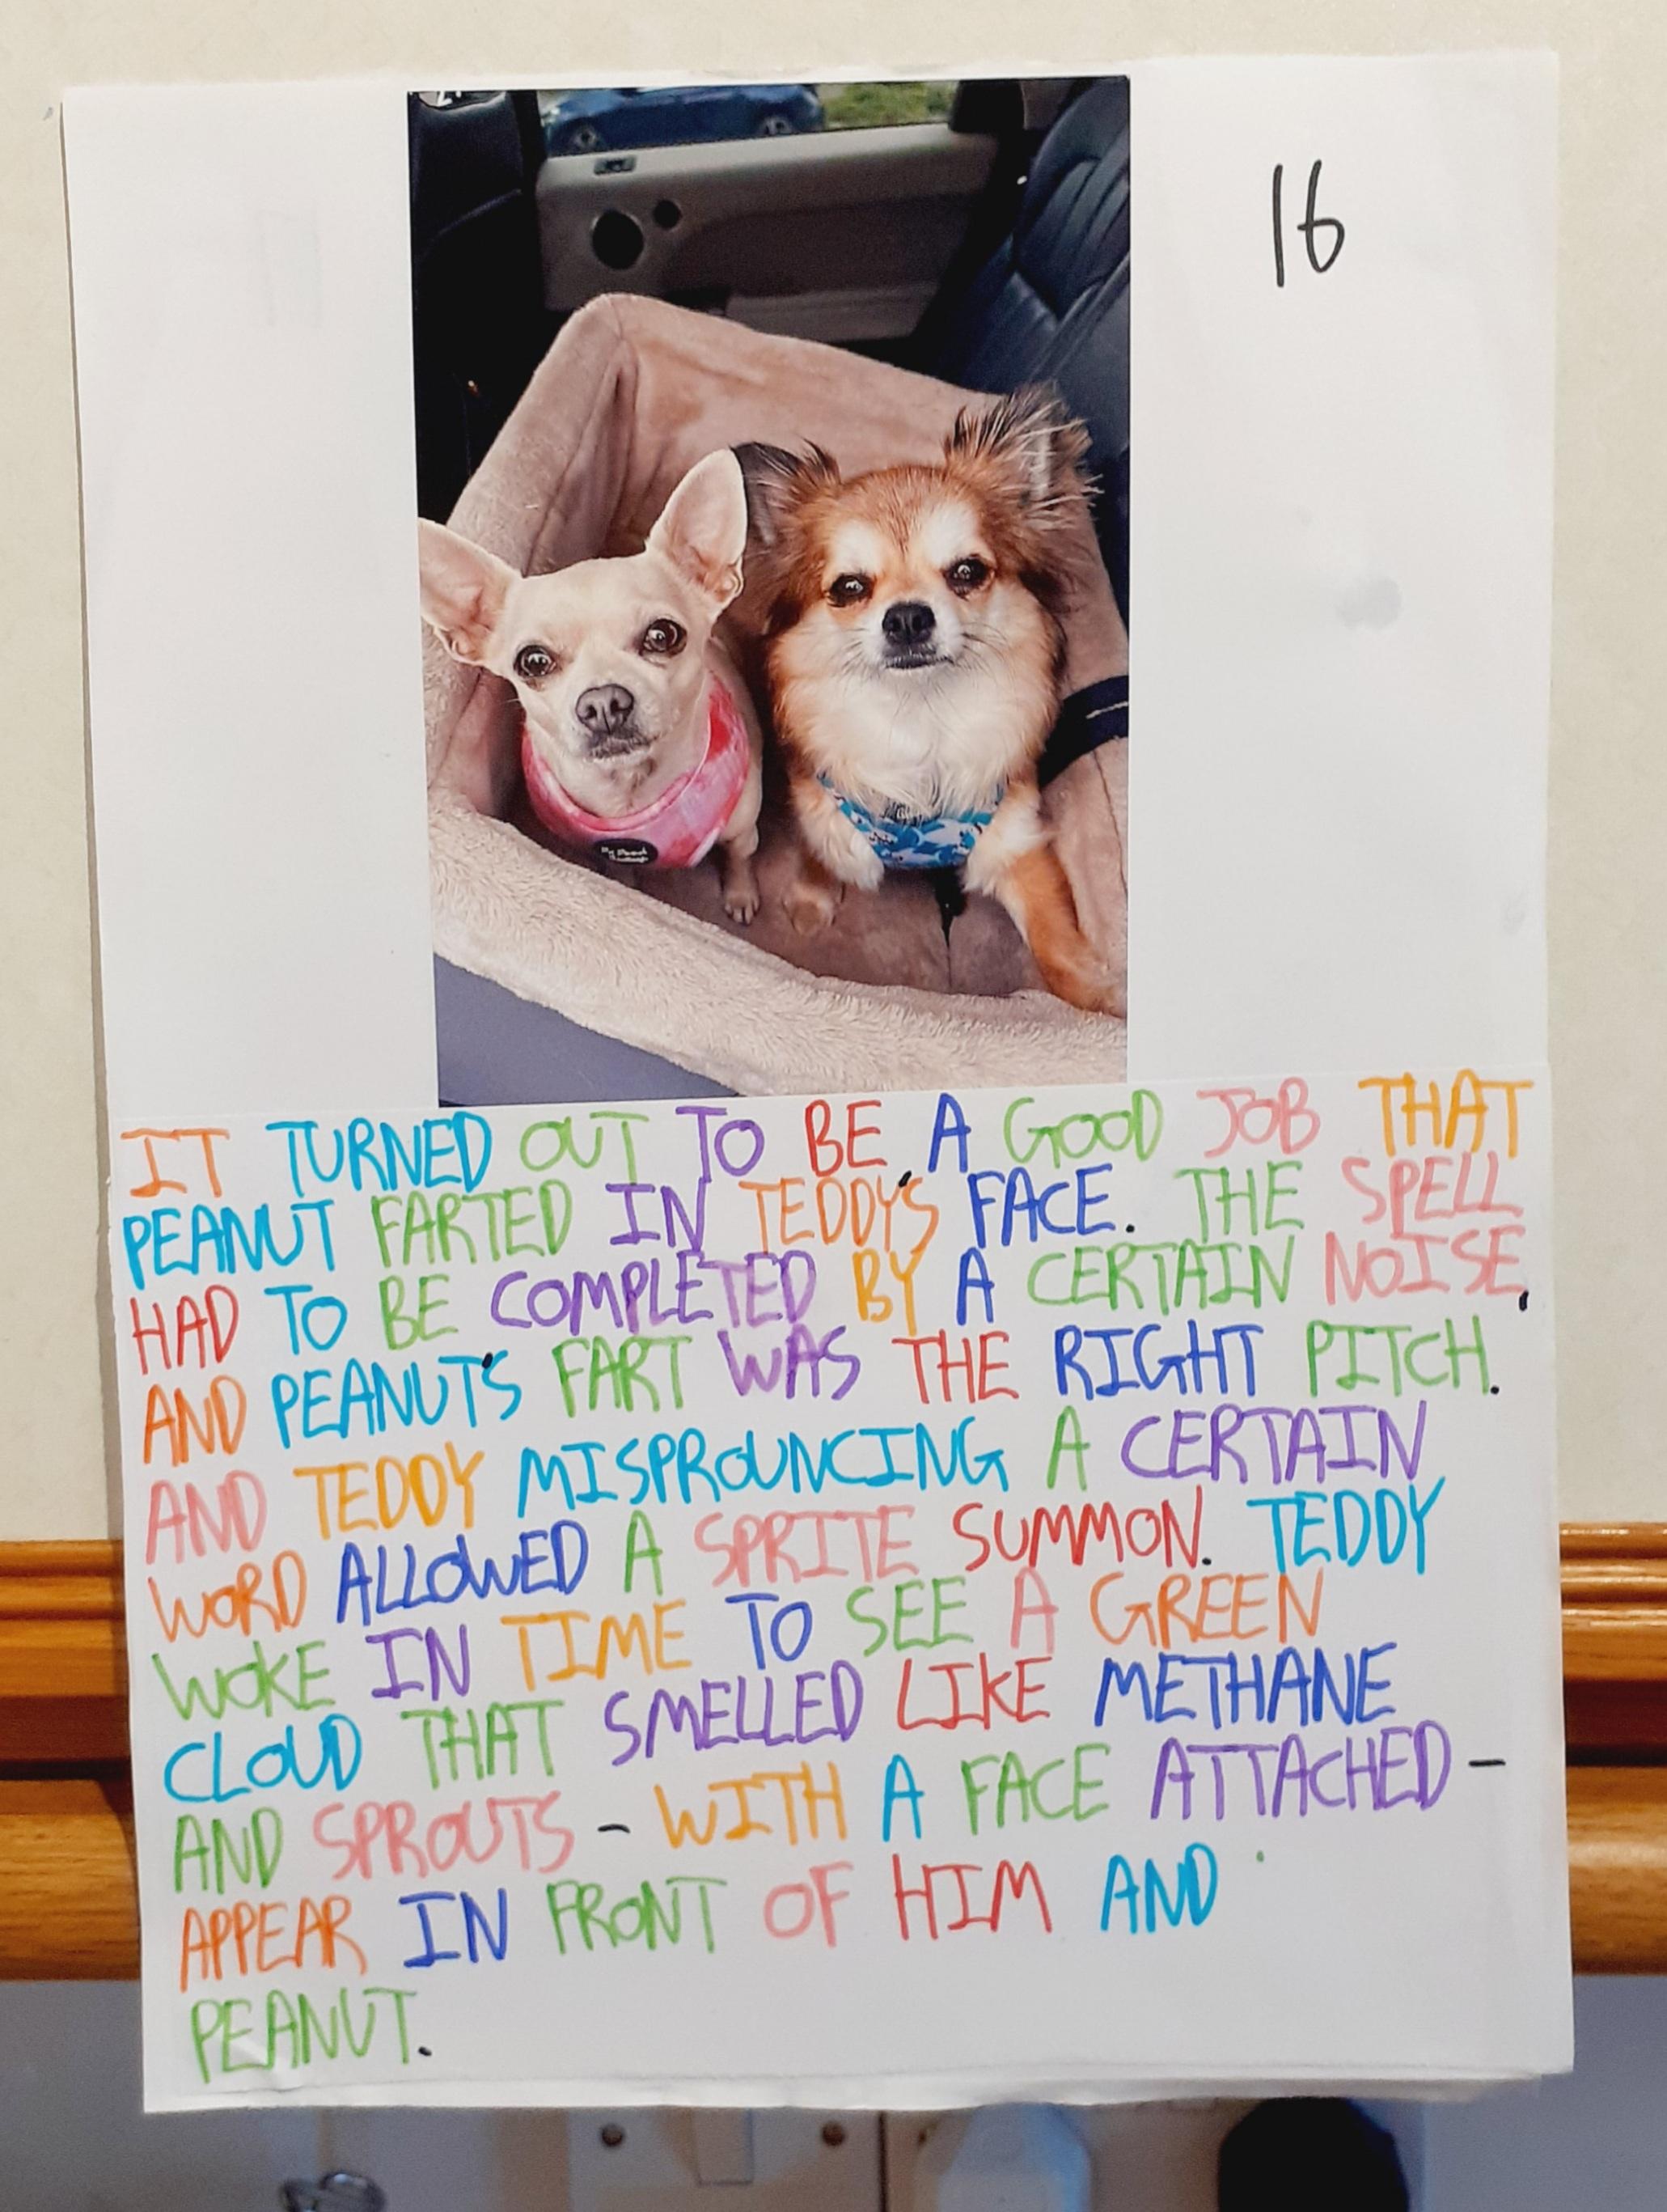 16
IT TURNED OUT TO BE A GOOD JOB THAT
PEANUT FARTED IN TEDDY'S FACE. THE SPELL
HAD TO BE COMPLETED BY A CERTAIN NOISE,
AND PEANUT'S FART WAS THE RIGHT PITCH.
AND TEDDY MISPROUNCING A CERTAIN
WORD ALLOWED A SPRITE SUMMON. TEDDY
WOKE IN TIME TO SEE A GREEN
CLOUD THAT SMELLED LIKE METHANE
AND SPROUTS - WITH A FACE ATTACHED -
APPEAR IN FRONT OF HIM AND
PEANUT.